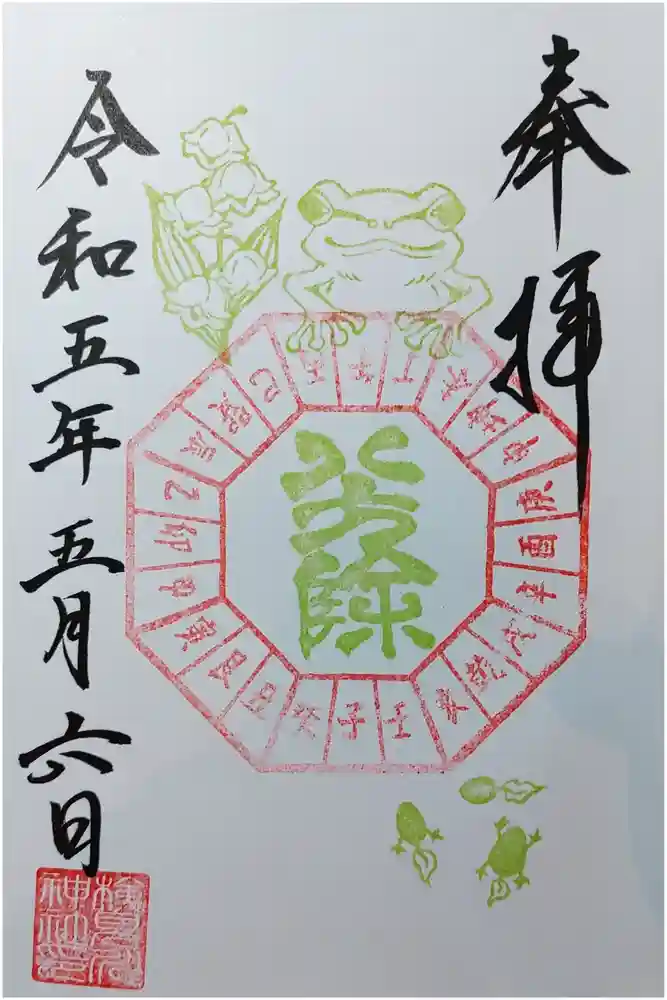 奉拝
巳丙午丁未坤申庚酉辛戌乾亥壬子癸丑艮寅甲卯乙辰巽
八方除
令和五年五月六日
検見川
神社